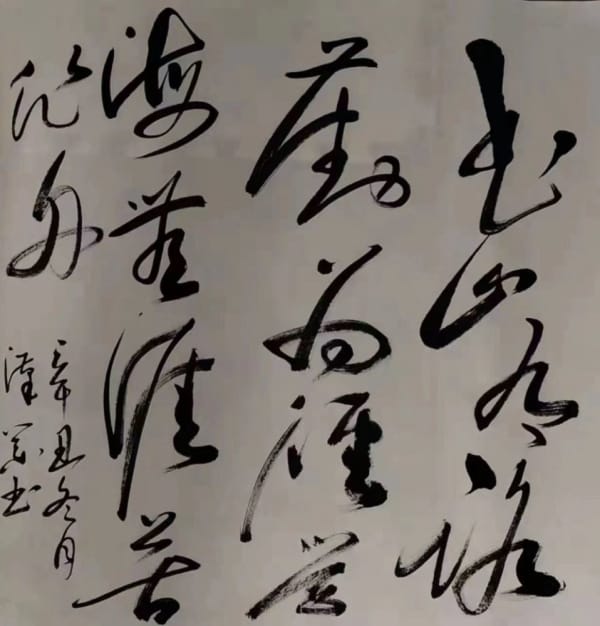 书山有路
勤为径学
海無涯苦
作舟
辛丑冬月
漢书